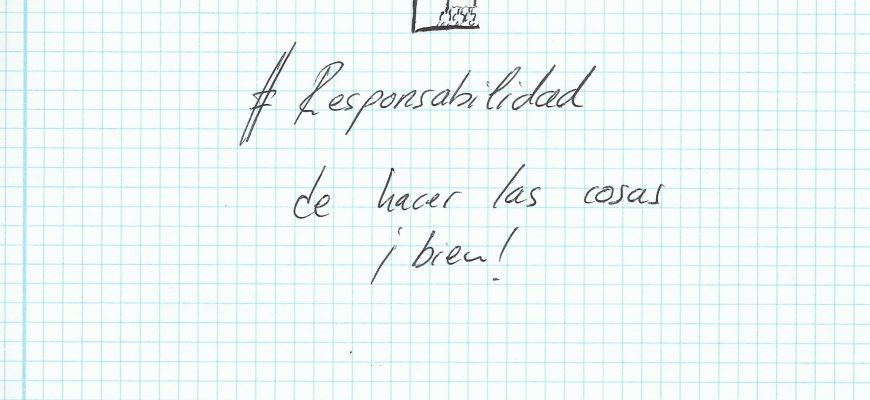 # Responsabilidad
de hacer las cosas
¡bien!